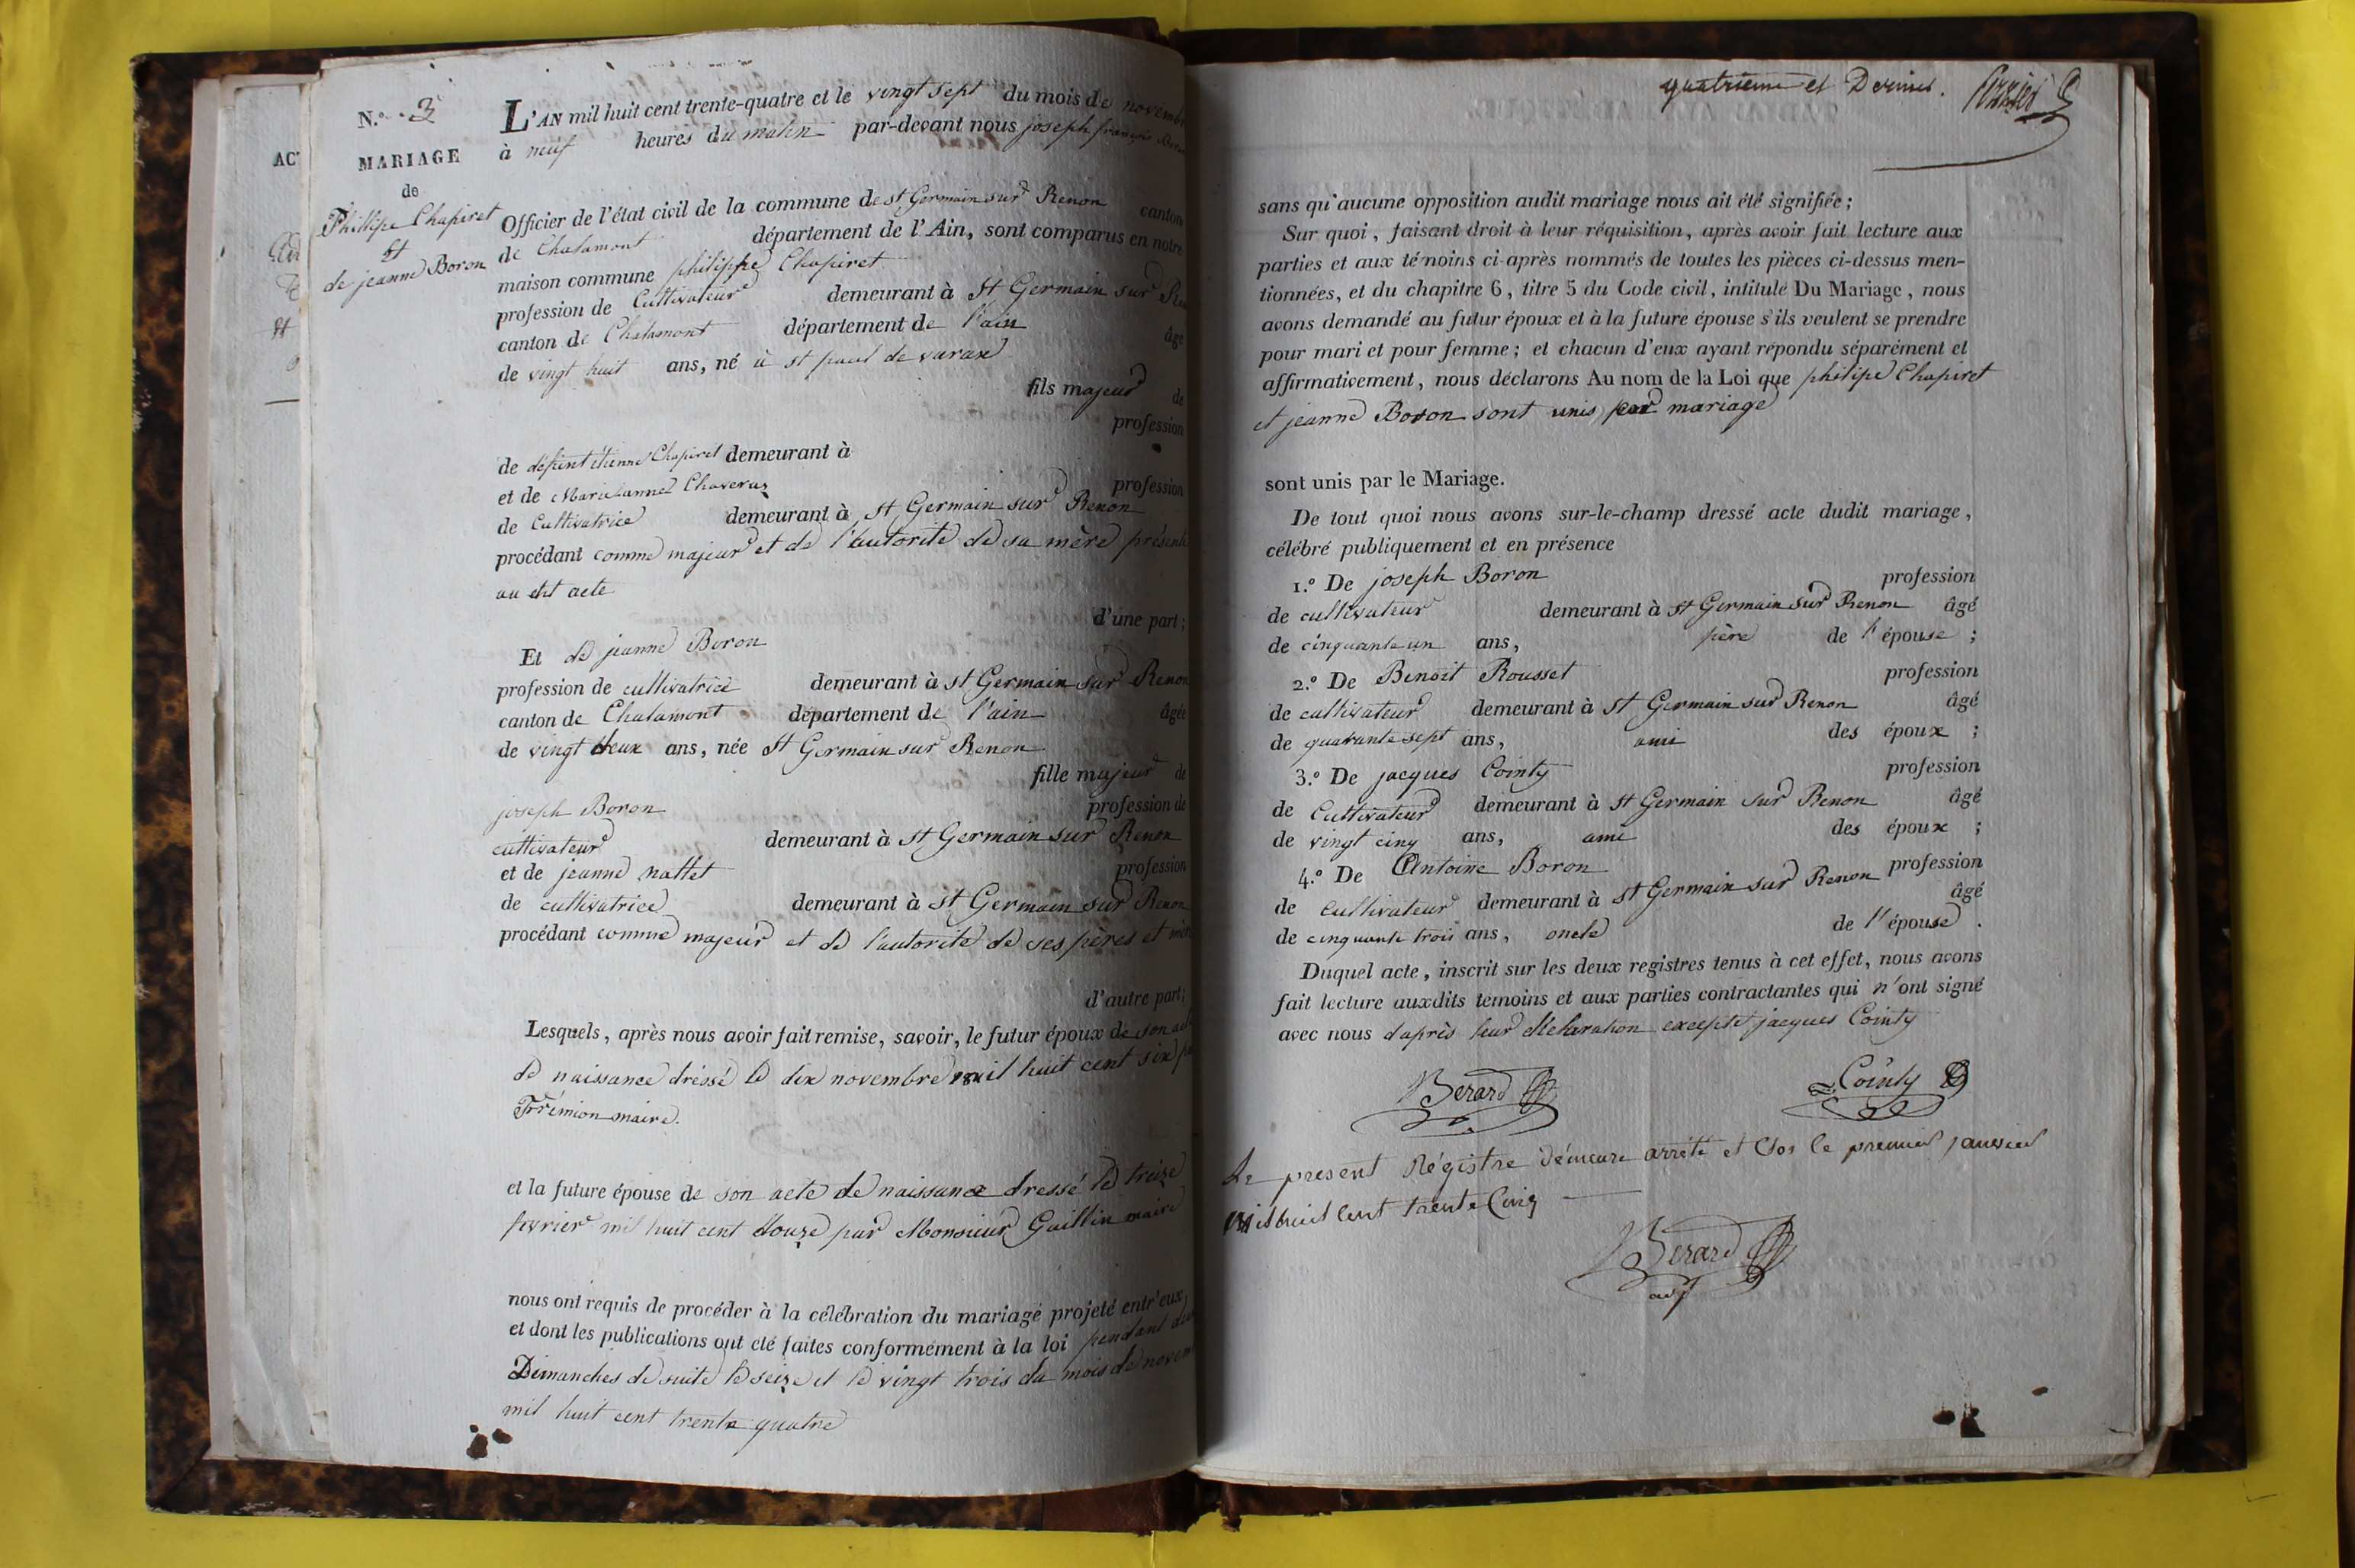 N.º 3
MARIAGE
de
Phillipe Chapiret
Et
de jeanne Boron
L'AN mil huit cent trente-quatre et le vingt sept du mois de novembre
à neuf heures du matin par-devant nous joseph françois
Officier de l'état civil de la commune de st Germain sur Renon canton
de Chalamont département de l'Ain, sont comparus en notre
maison commune philippe Chapiret
profession de Cultivateur demeurant à St Germain sur
canton de Chalamont département de l'ain âgé
de vingt huit ans, né à st paul de varax
fils majeur de
profession
de défunt étienne Chapiret demeurant à
et de Marieanne Chaverux profession
de Cultivatrice demeurant à St Germain sur Renon
procédant comme majeur et de l'autorité de sa mère présente
au dit acte
d'une part;
Et de jeanne Boron
profession de cultivatrice demeurant à St Germain sur Renon
canton de Chalamont département de l'ain âgée
de vingt deux ans, née St Germain sur Renon
fille majeur de
joseph Boron profession de
cultivateur demeurant à St Germain sur Renon
et de jeanne nattet profession
de cultivatrice demeurant à St Germain sur Renon
procédant comme majeur et de l'autorité de ses pères et mère
d'autre part;
Lesquels, après nous avoir fait remise, savoir, le futur époux de son acte
de naissance dréssé le dix novembre mil huit cent six par
Frémion maire.
et la future épouse de son acte de naissance dressé le treize
fevrier mil huit cent douze par Monsieur Guillin maire
nous ont requis de procéder à la célébration du mariage projeté entr'eux,
et dont les publications ont été faites conformément à la loi pendant deux
Dimanches de suite le seize et le vingt trois du mois de novembre
mil huit cent trente quatre
quatrieme et Dernier.
sans qu'aucune opposition audit mariage nous ait été signifiée;
Sur quoi, faisant droit à leur réquisition, après avoir fait lecture aux
parties et aux témoins ci-après nommés de toutes les pièces ci-dessus men-
tionnées, et du chapitre 6, titre 5 du Code civil, intitulé Du Mariage, nous
avons demandé au futur époux et à la future épouse s'ils veulent se prendre
pour mari et pour femme; et chacun d'eux ayant répondu séparément et
affirmativement, nous déclarons Au nom de la Loi que philipe Chapiret
et jeanne Boron sont unis par mariage
sont unis par le Mariage.
De tout quoi nous avons sur-le-champ dressé acte dudit mariage,
célébré publiquement et en présence
1.º De joseph Boron profession
de cultivateur demeurant à st Germain sur Renon âgé
de cinquante un ans, père de l'épouse;
2.º De Benoit Rousset profession
de cultivateur demeurant à St Germain sur Renon âgé
de quarante sept ans, ami des époux;
3.º De jacques Cointy profession
de Cultivateur demeurant à st Germain sur Renon âgé
de vingt cinq ans, ami des époux;
4.º De Antoine Boron profession
de cultivateur demeurant à st Germain sur Renon âgé
de cinquante trois ans, oncle de l'épouse.
Duquel acte, inscrit sur les deux registres tenus à cet effet, nous avons
fait lecture auxdits témoins et aux parties contractantes qui n'ont signé
avec nous d'après leur déclaration excepté jacques Cointy
Berard Cointy
Le present Régistre démeure arreté et Clos le premier janvier
Mil huit Cent trente Cinq
Berard
adjt